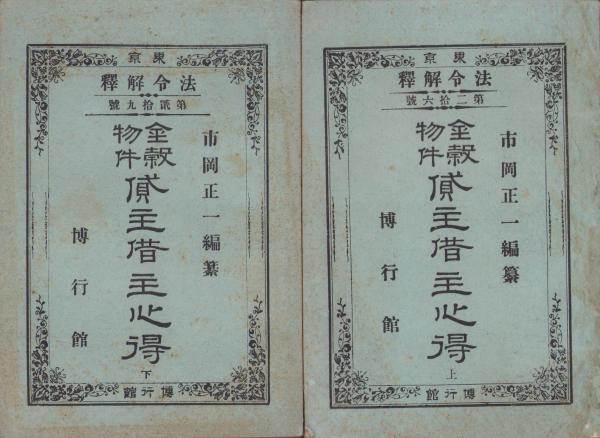 東京
法令解釋
第二拾六號
市岡正一編纂
金穀
物件
貸主借主心得
上
博行館
博行館
東京
法令解釋
第貳拾九號
市岡正一編纂
金穀
物件
貸主借主心得
下
博行館
博行館